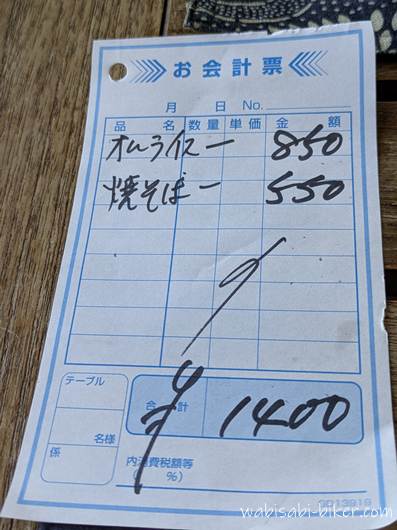 お会計票
月 日 No.
品 名 数量 単価 金 額
オムライス 一 850
焼そば 一 550
テーブル
名様
係
合 計 ¥1400
内消費税額等
( %)
wabisabi-biker.com